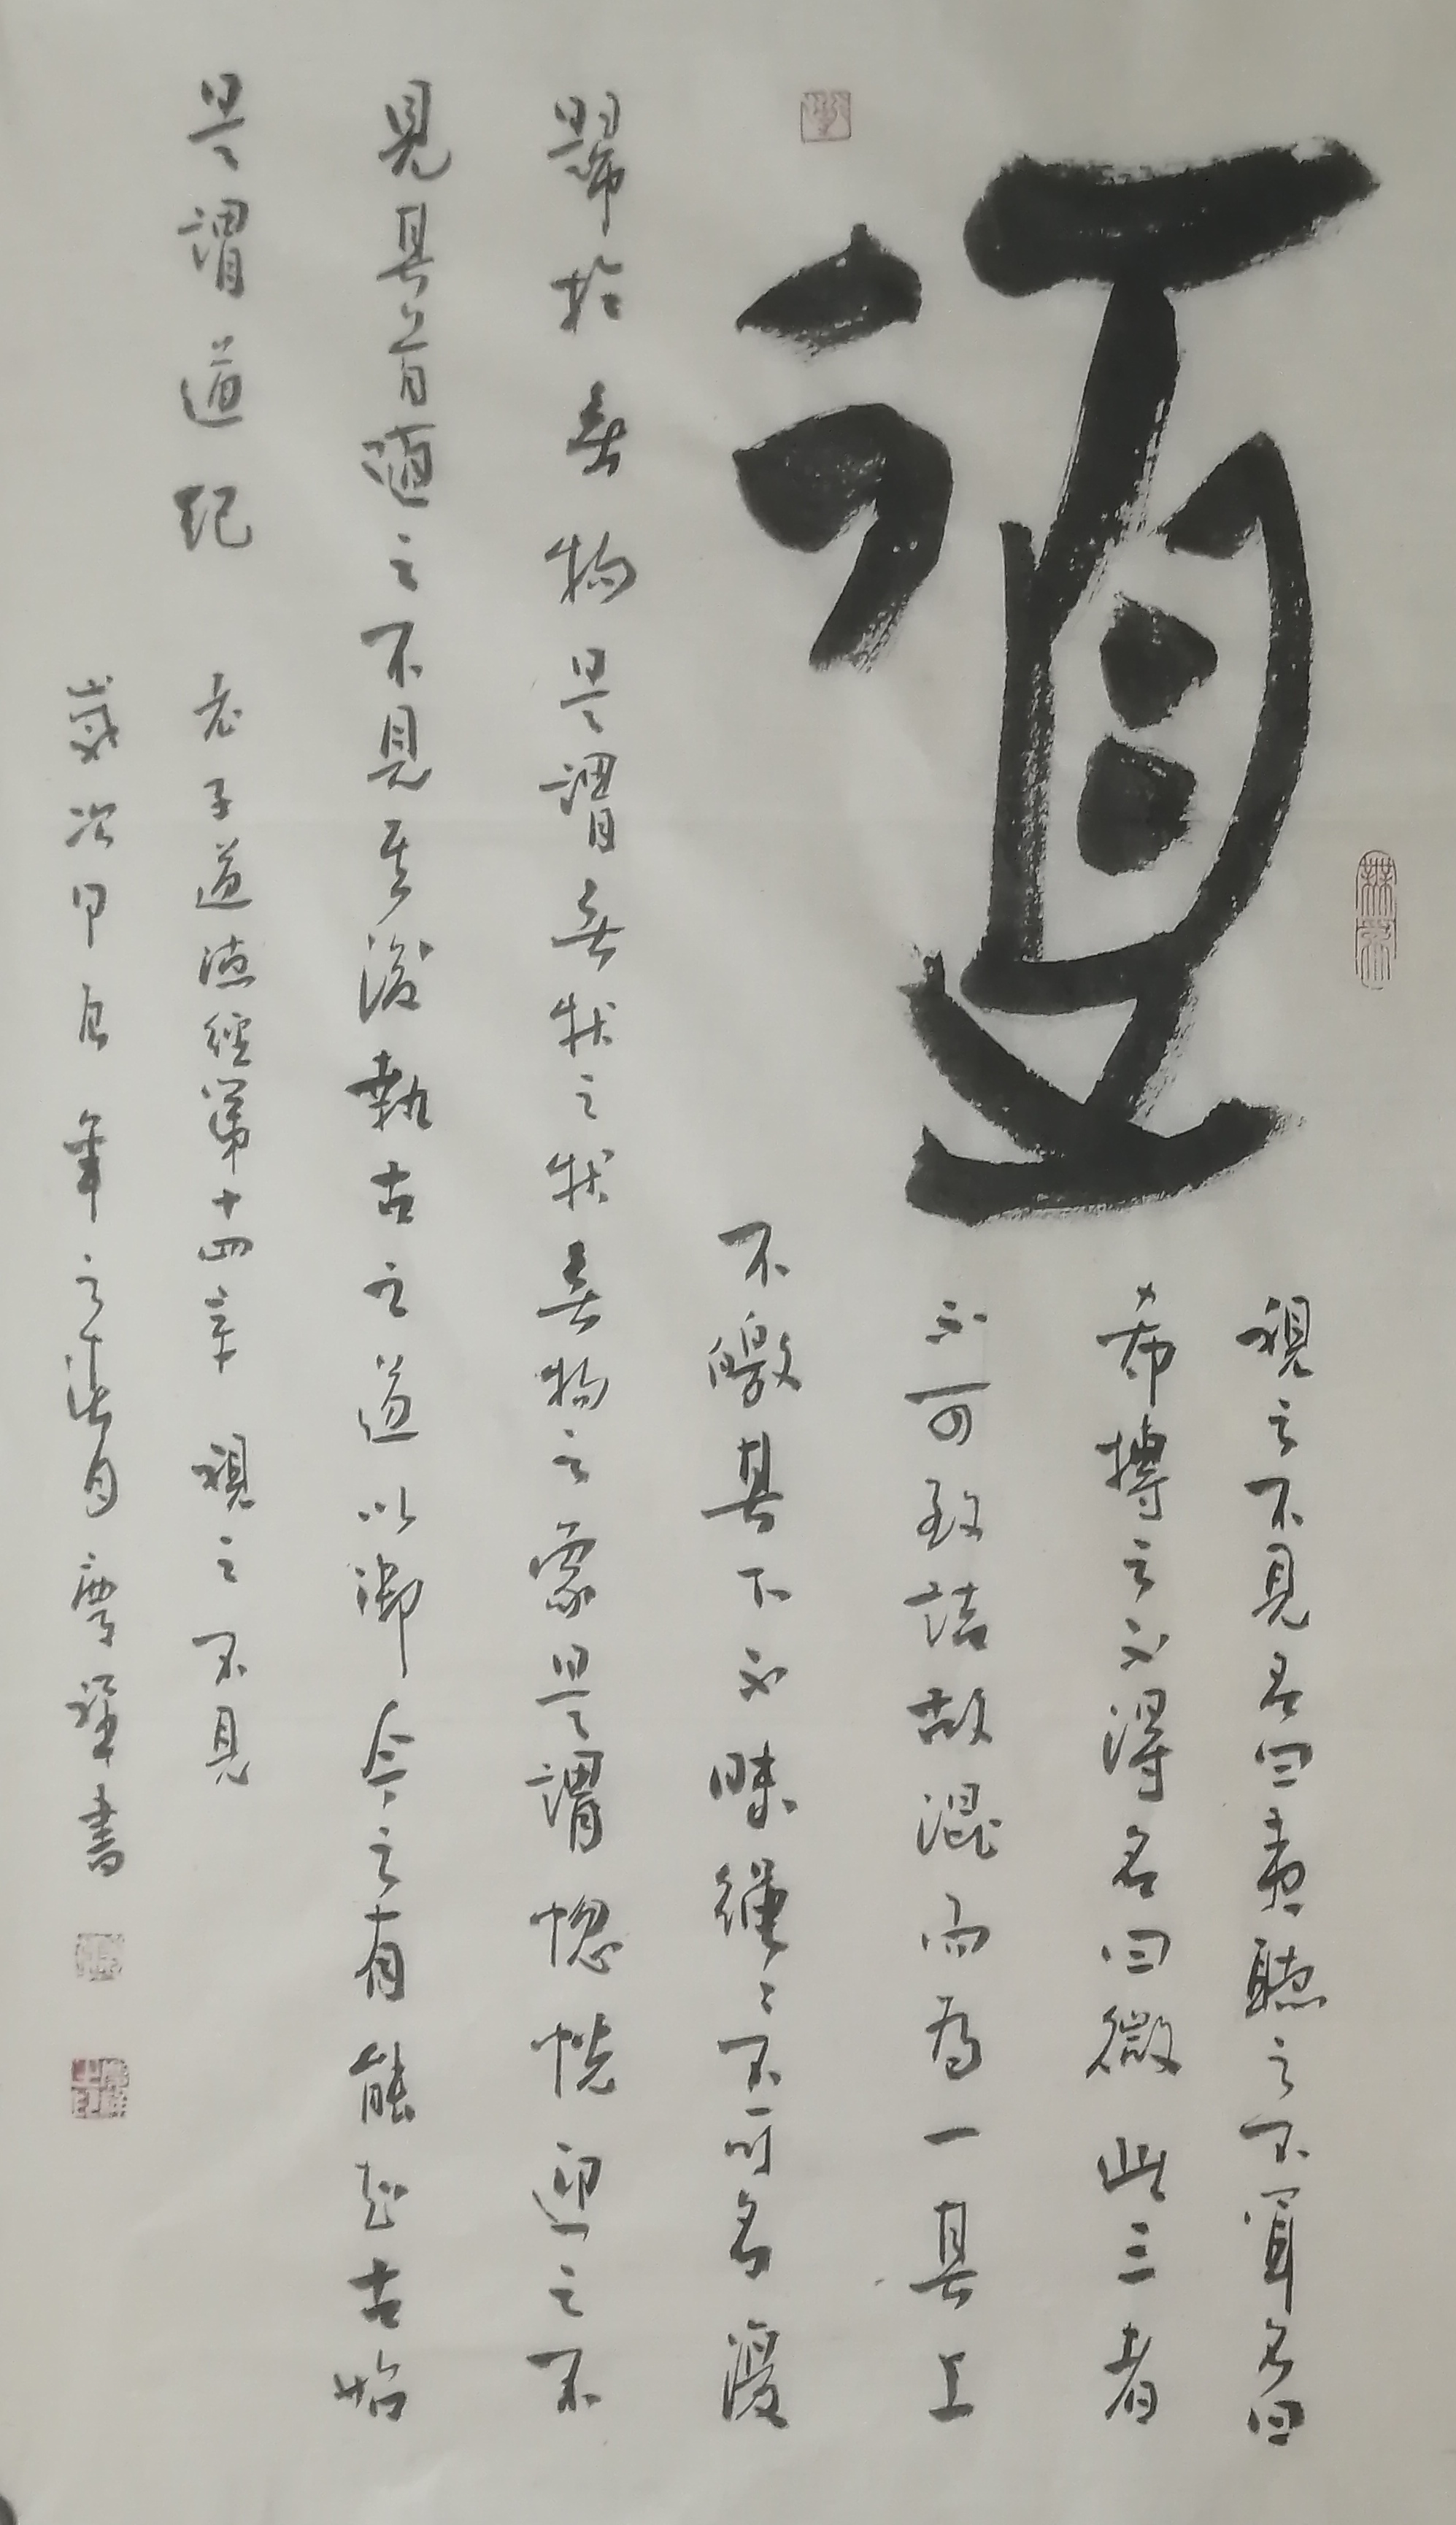 視之不見名曰夷聽之不聞名曰
希搏之不得名曰微此三者
不可致詰故混而為一其上
不皦其下不昧繩〻不可名復
歸於無物是謂無狀之狀無物之象是謂惚恍迎之不
見其首隨之不見其後執古之道以御今之有能知古始
是謂道紀 老子道德經第十四章 視之不見
歲次甲辰年之 月 書